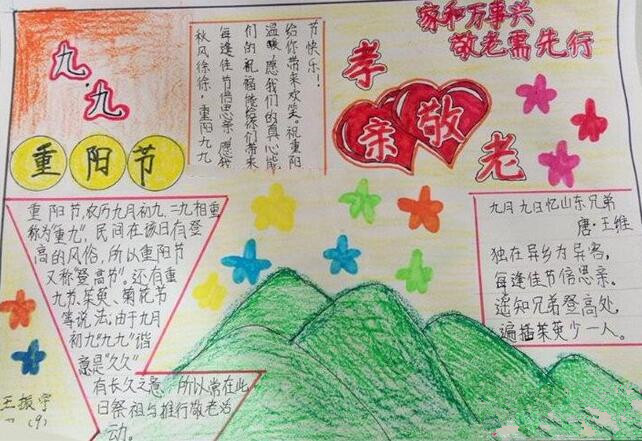 九·九
重阳节
秋风徐徐·重阳九九
每逢佳节倍思亲,愿我
们的祝福能给你们带来
温暖,愿我们的真心能
给你带来欢笑。祝重阳
节快乐!
家和万事兴
敬老需先行
孝亲敬老
重阳节,农历九月初九,二九相重
称为"重九",民间在该日有登
高的风俗,所以重阳节
又称"登高节"。还有重
九节、茱萸、菊花节
等说法,由于九月
初九"九九"谐
意是"久久"
有长久之意,所以常在此
日祭祖与推行敬老活
动。
九月九日忆山东兄弟
唐·王维
独在异乡为异客,
每逢佳节倍思亲。
遥知兄弟登高处,
遍插茱萸少一人。
(9)